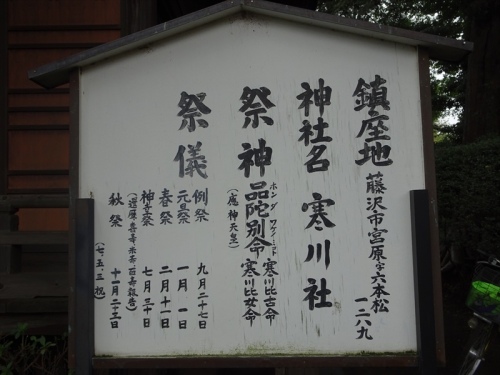 鎮座地 藤沢市宮原字六本松
一二八九
神社名 寒川社
祭神 品陀別命 寒川比古命
ホンダワケノミコト
(應神天皇) 寒川比女命
祭儀
例祭 九月二十七日
元旦祭 一月一日
春祭 二月十一日
神幸祭 七月三十日
秋祭 十一月二十三日
(七、五、三祝)